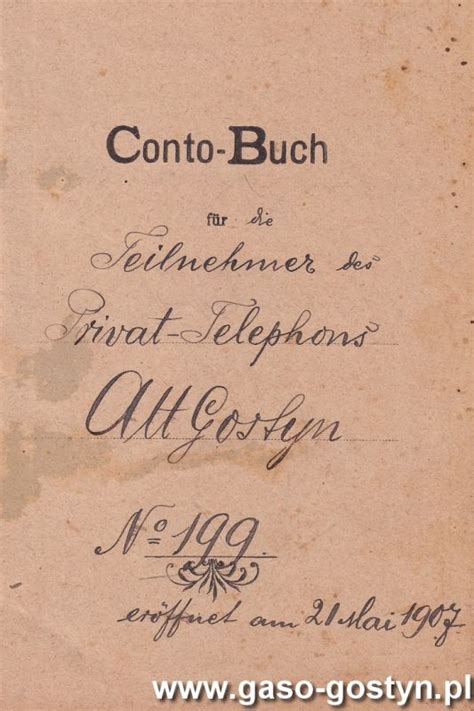 Conto-Buch
für die
Teilnehmer des
Privat-Telephons
Alt Gostyn
No 199.
eröffnet am 21 Mai 1907
www.gaso-gostyn.pl